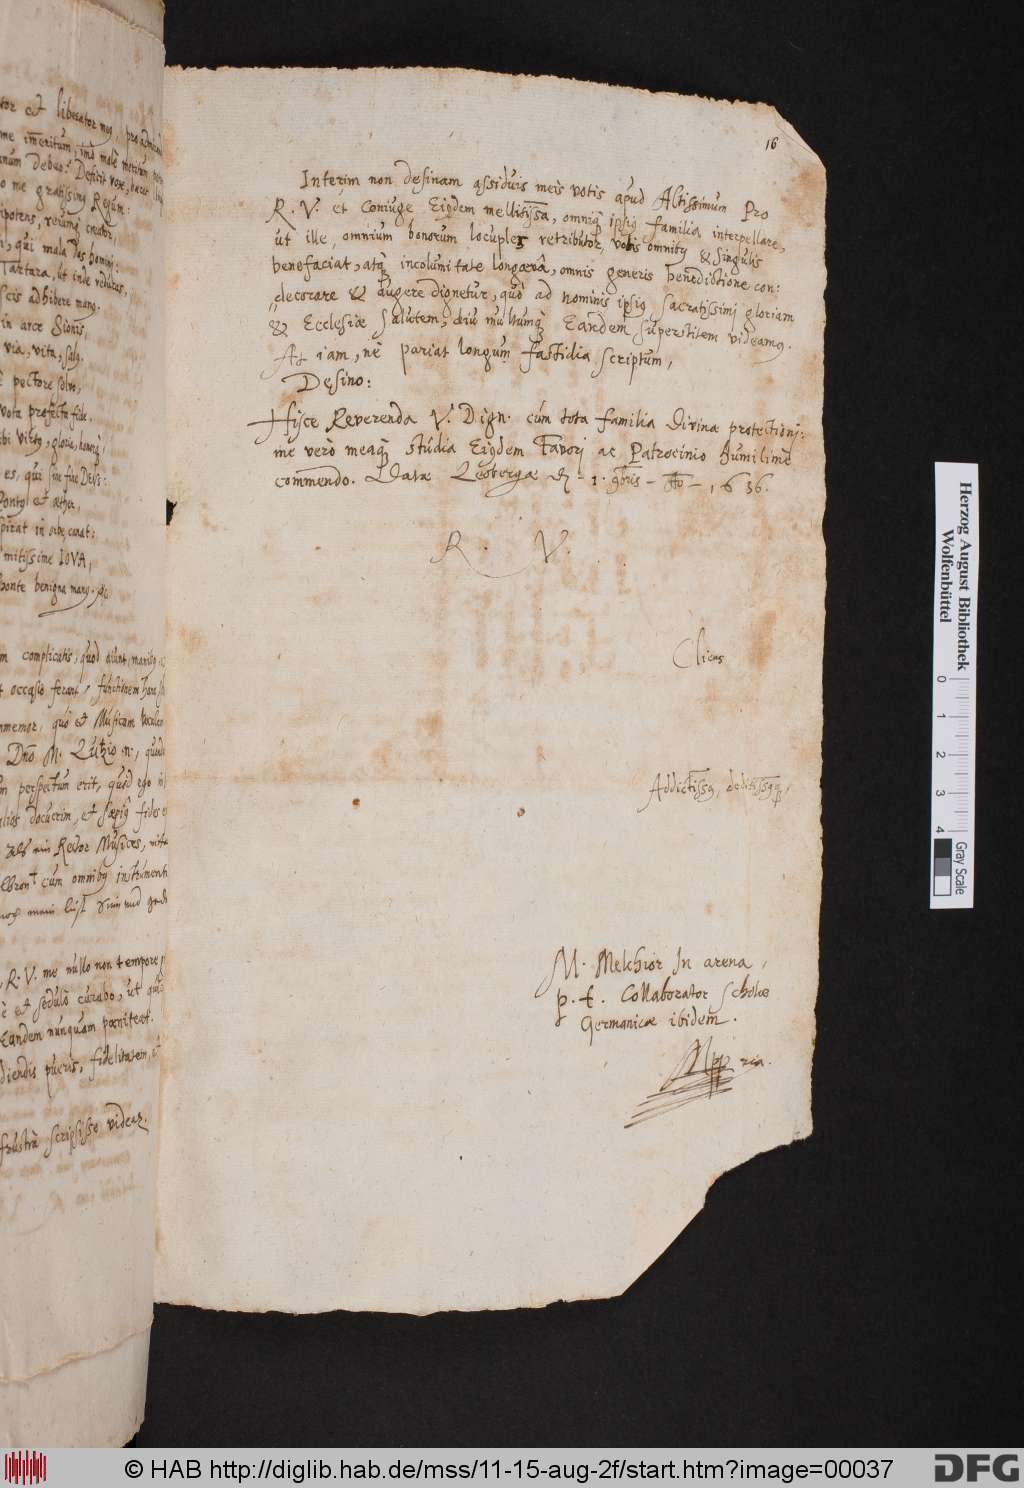 tor et liberator meus, pro admira
me immeritum, imò malè meritum
Deficit vox, haeret
o me gratissimus Regum:
ipotens, rerumq; creator,
i, qui mala das homini:
Tartara, ut inde reducas,
scis adhibere manus.
in arce Sionis,
via, vita, salus.
è pectore solvo,
vota profecta fide.
ibi virtus, gloria, honorq;
es, qui sine fine Deus:
Pontus et aether,
spirat in orbe, canat:
mitissime IOVA,
sponte benigna manus. &c
m complicatis, quod aiunt, manibus
t occasio ferant, functionem hanc
memor, quò et Musicam
Dno M. Lutzio n., quod
m perspectum erit, quod ego
alios docuerim, et saepius fides
Rector Musices,
cum omnibus instrumenti
lust
R. V. me nullo non tempore
è et sedulò curabo, ut
Eandem nunquam poeniteat.
diendis pueris, fidelitatem,
frustrà scripsisse videar.
16
Interim non desinam assiduis meis votis apud Altissimum pro
R. V. et Coniuge Eiusdem mellitissa, omniq; ipsius familia interpellare,
ut ille, omnium bonorum locuples retributor, vobis omnibus & singulis
benefaciat, atq; incolumitate longaevâ, omnis generis benedictione con:
decorare & augere dignetur, quò ad nominis ipsius sacratissimi gloriam
& Ecclesiae salutem, diu multumq; Eandem superstitem videamus.
At iam, nè pariat longum fastidia scriptum,
Desino:
Hisce Reverenda V. Dign. cum tota familia divinae protectioni:
me verò meaq; studia Eiusdem Favori ac Patrocinio humilimè
commendo. Datae Leobergae d. - 1. 9bris - Ao - 1636.
R. V.
Cliens
Addictissus, deditissusq;
M. Melchior In arena,
p. t. Collaborator Scholae
Germanicae ibidem.
Mppria.
Herzog August Bibliothek
Wolfenbüttel
0 1 2 3 4
Gray Scale
© HAB http://diglib.hab.de/mss/11-15-aug-2f/start.htm?image=00037
DFG